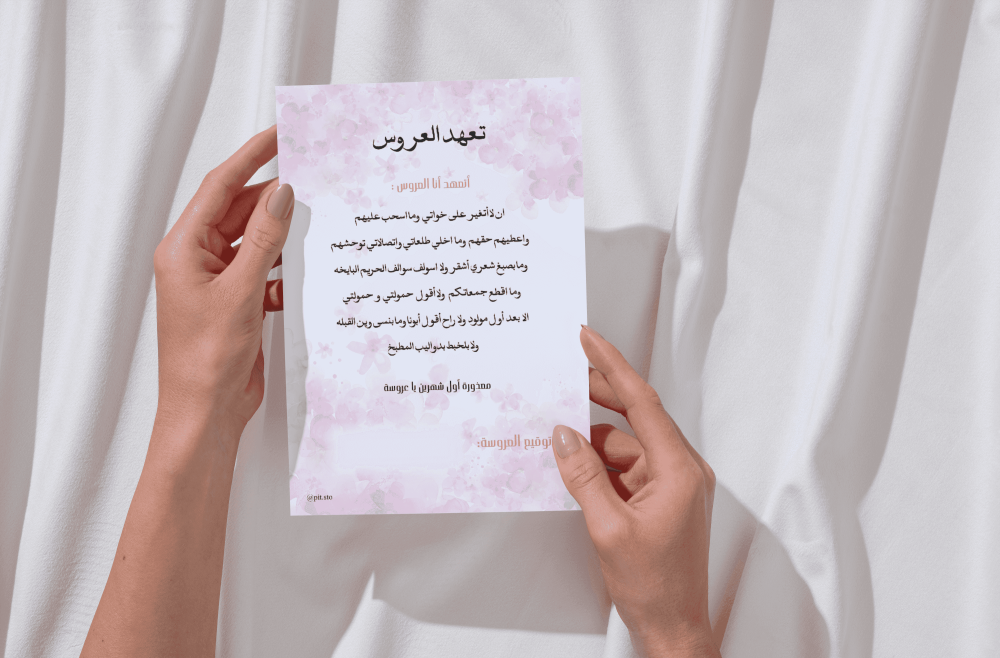 تعهد العروس
أتعهد أنا العروس :
ان لا أتغير على خواتي وما اسحب عليهم
واعطيهم حقهم وما اخلي طلعاتي واتصالاتي توحشهم
وما بصبغ شعري أشقر ولا اسولف سوالف الحريم البايخه
وما اقطع جمعاتكم ولا أقول حمولتي و حمولتي
الا بعد أول مولود ولا راح أقول أبونا وما بنسى وين القبله
ولا بلخبط بدواليب المطبخ
معذورة أول شهرين يا عروسة
توقيع العروسة:
@pit.sto